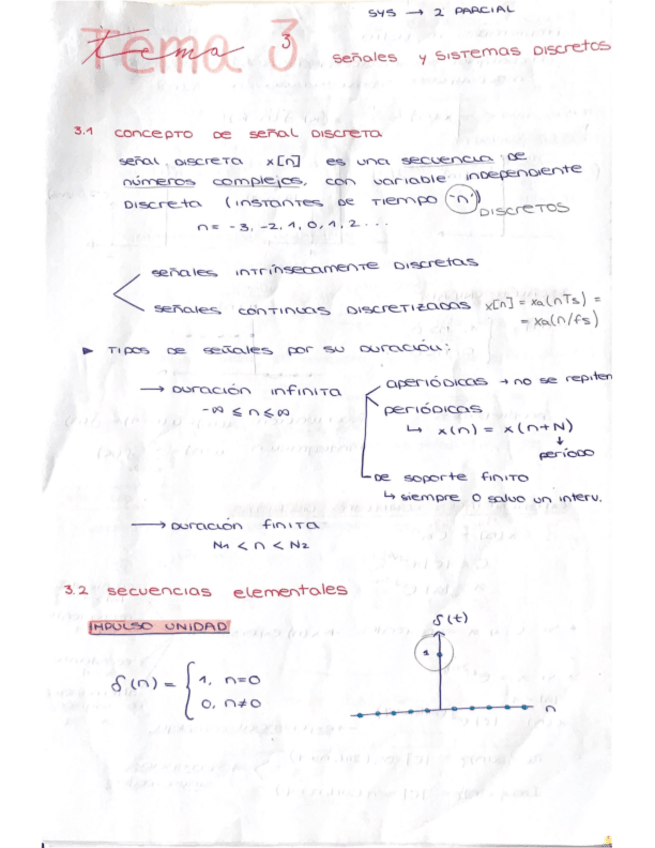 SYS → 2 PARCIAL
Tema 3
señales y sistemas discretos
3.1 concepto de señal discreta
señal discreta x[n] es una secuencia de
números complejos, con variable independiente
discreta (instantes de tiempo "n")
DISCRETOS
n = -3, -2, 1, 0, 1, 2 ...
señales intrínsecamente discretas
señales continuas discretizadas x[n] = xa(nTs) =
= xa(n/fs)
► Tipos de señales por su duración:
→ duración infinita
-∞ ≤ n ≤ ∞
aperiódicas → no se repiten
periódicas
↳ x(n) = x(n+N)
↓
período
de soporte finito
↳ siempre 0 salvo un interv.
→ duración finita
N1 < n < N2
3.2 secuencias elementales
IMPULSO UNIDAD
δ(n) = { 1, n=0
0, n≠0
δ(t)
1
n